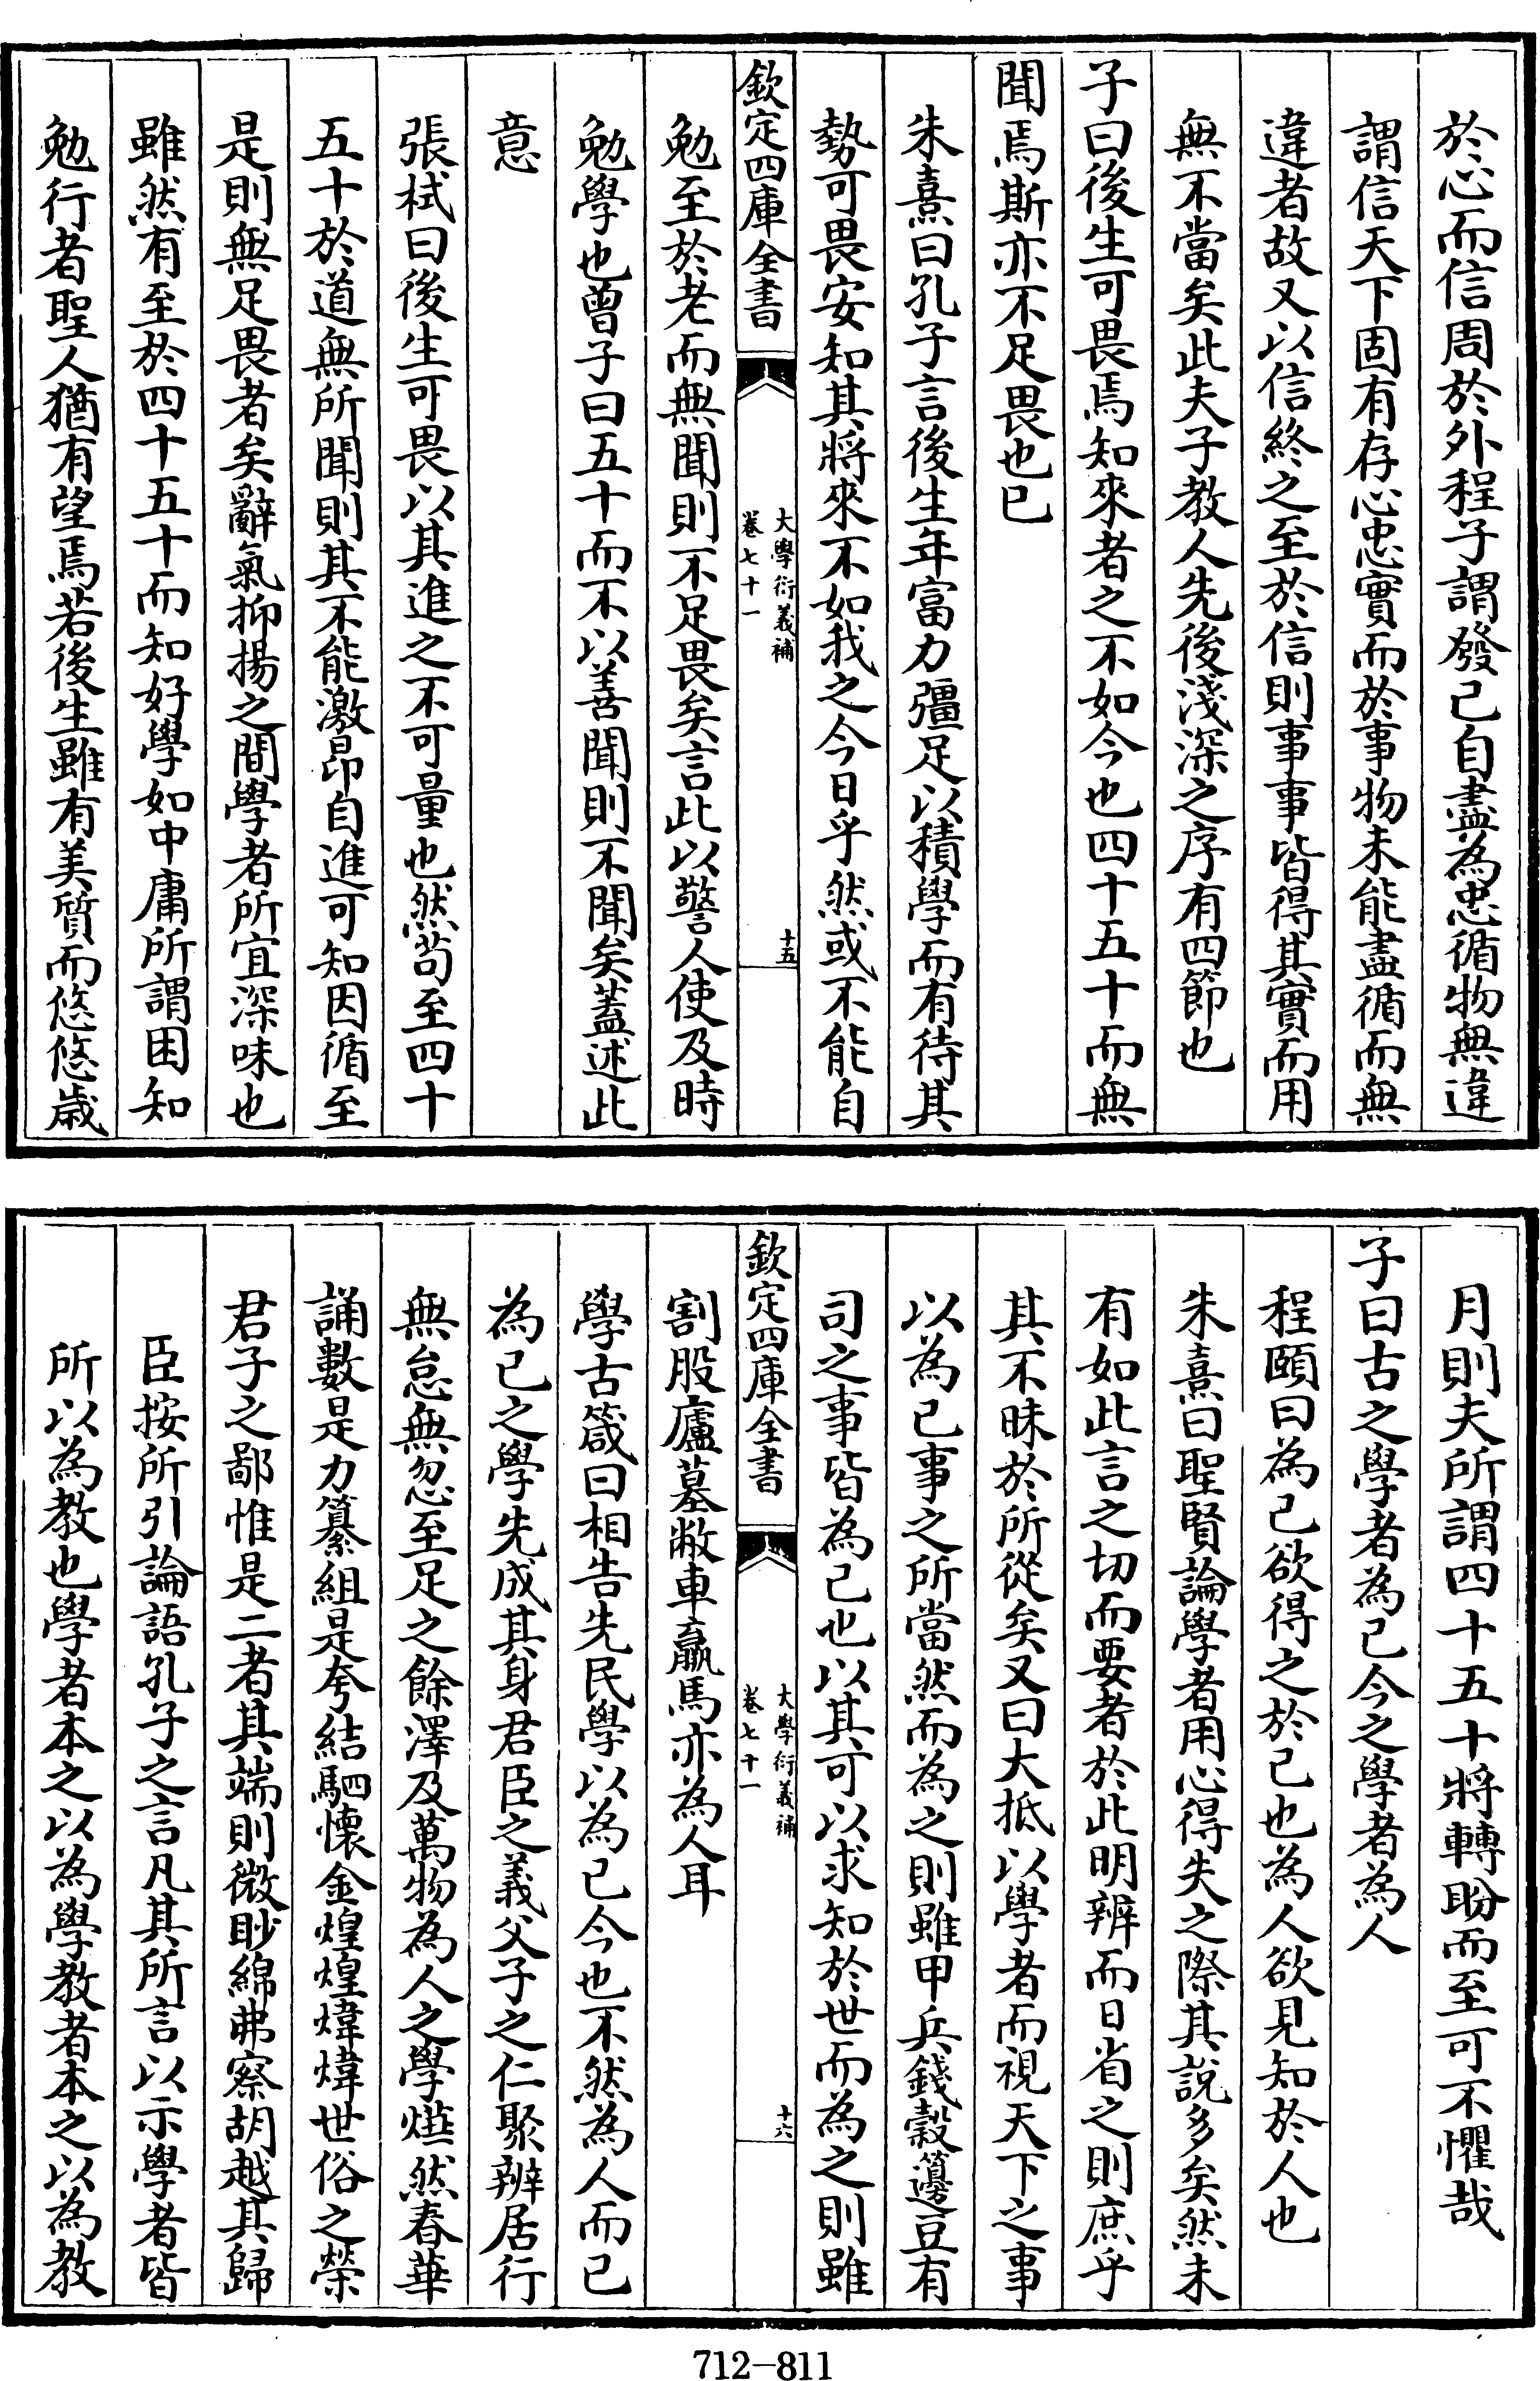 於心而信周於外程子謂發己自盡為忠循物無違
謂信天下固有存心忠實而於事物未能盡循而無
違者故又以信終之至於信則事事皆得其實而用
無不當矣此夫子教人先後淺深之序有四節也
子曰後生可畏焉知來者之不如今也四十五十而無
聞焉斯亦不足畏也已
朱熹曰孔子言後生年富力彊足以積學而有待其
勢可畏安知其將來不如我之今日乎然或不能自
欽定四庫全書
大學衍義補
卷七十一
十五
勉至於老而無聞則不足畏矣言此以警人使及時
勉學也曾子曰五十而不以善聞則不聞矣蓋述此
意
張栻曰後生可畏以其進之不可量也然苟至四十
五十於道無所聞則其不能激昂自進可知因循至
是則無足畏者矣辭氣抑揚之間學者所宜深味也
雖然有至於四十五十而知好學如中庸所謂困知
勉行者聖人猶有望焉若後生雖有美質而悠悠歲
月則夫所謂四十五十將轉盼而至可不懼哉
子曰古之學者為已今之學者為人
程頤曰為己欲得之於己也為人欲見知於人也
朱熹曰聖賢論學者用心得失之際其說多矣然未
有如此言之切而要者於此明辨而日省之則庶乎
其不昧於所從矣又曰大抵以學者而視天下之事
以為已事之所當然而為之則雖甲兵錢穀籩豆有
司之事皆為己也以其可以求知於世而為之則雖
欽定四庫全書
大學衍義補
卷七十一
十六
割股廬墓敝車羸馬亦為人耳
學古箴曰相告先民學以為已今也不然為人而已
為已之學先成其身君臣之義父子之仁聚辨居行
無怠無忽至足之餘澤及萬物為人之學燁然春華
誦數是力纂組是夸結駟懷金煌煌煒煒世俗之榮
君子之鄙惟是二者其端則微眇綿弗察胡越其歸
臣按所引論語孔子之言凡其所言以示學者皆
所以為教也學者本之以為學教者本之以為教
712-811